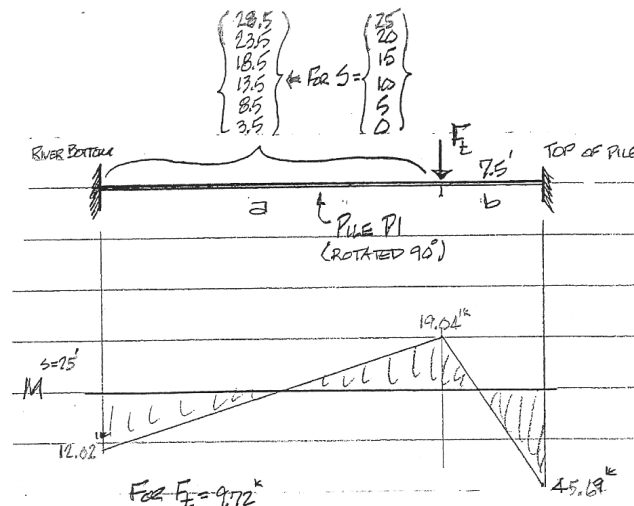 28.5
23.5
18.5
13.5
8.5
3.5
← FOR S =
25
20
15
10
5
0
RIVER BOTTOM
F_z
7.5'
TOP OF PILE
a
b
PILE P1
(ROTATED 90°)
19.04'ᵏ
M S=25'
12.02'ᵏ
45.69'ᵏ
FOR F_z = 9.72ᵏ